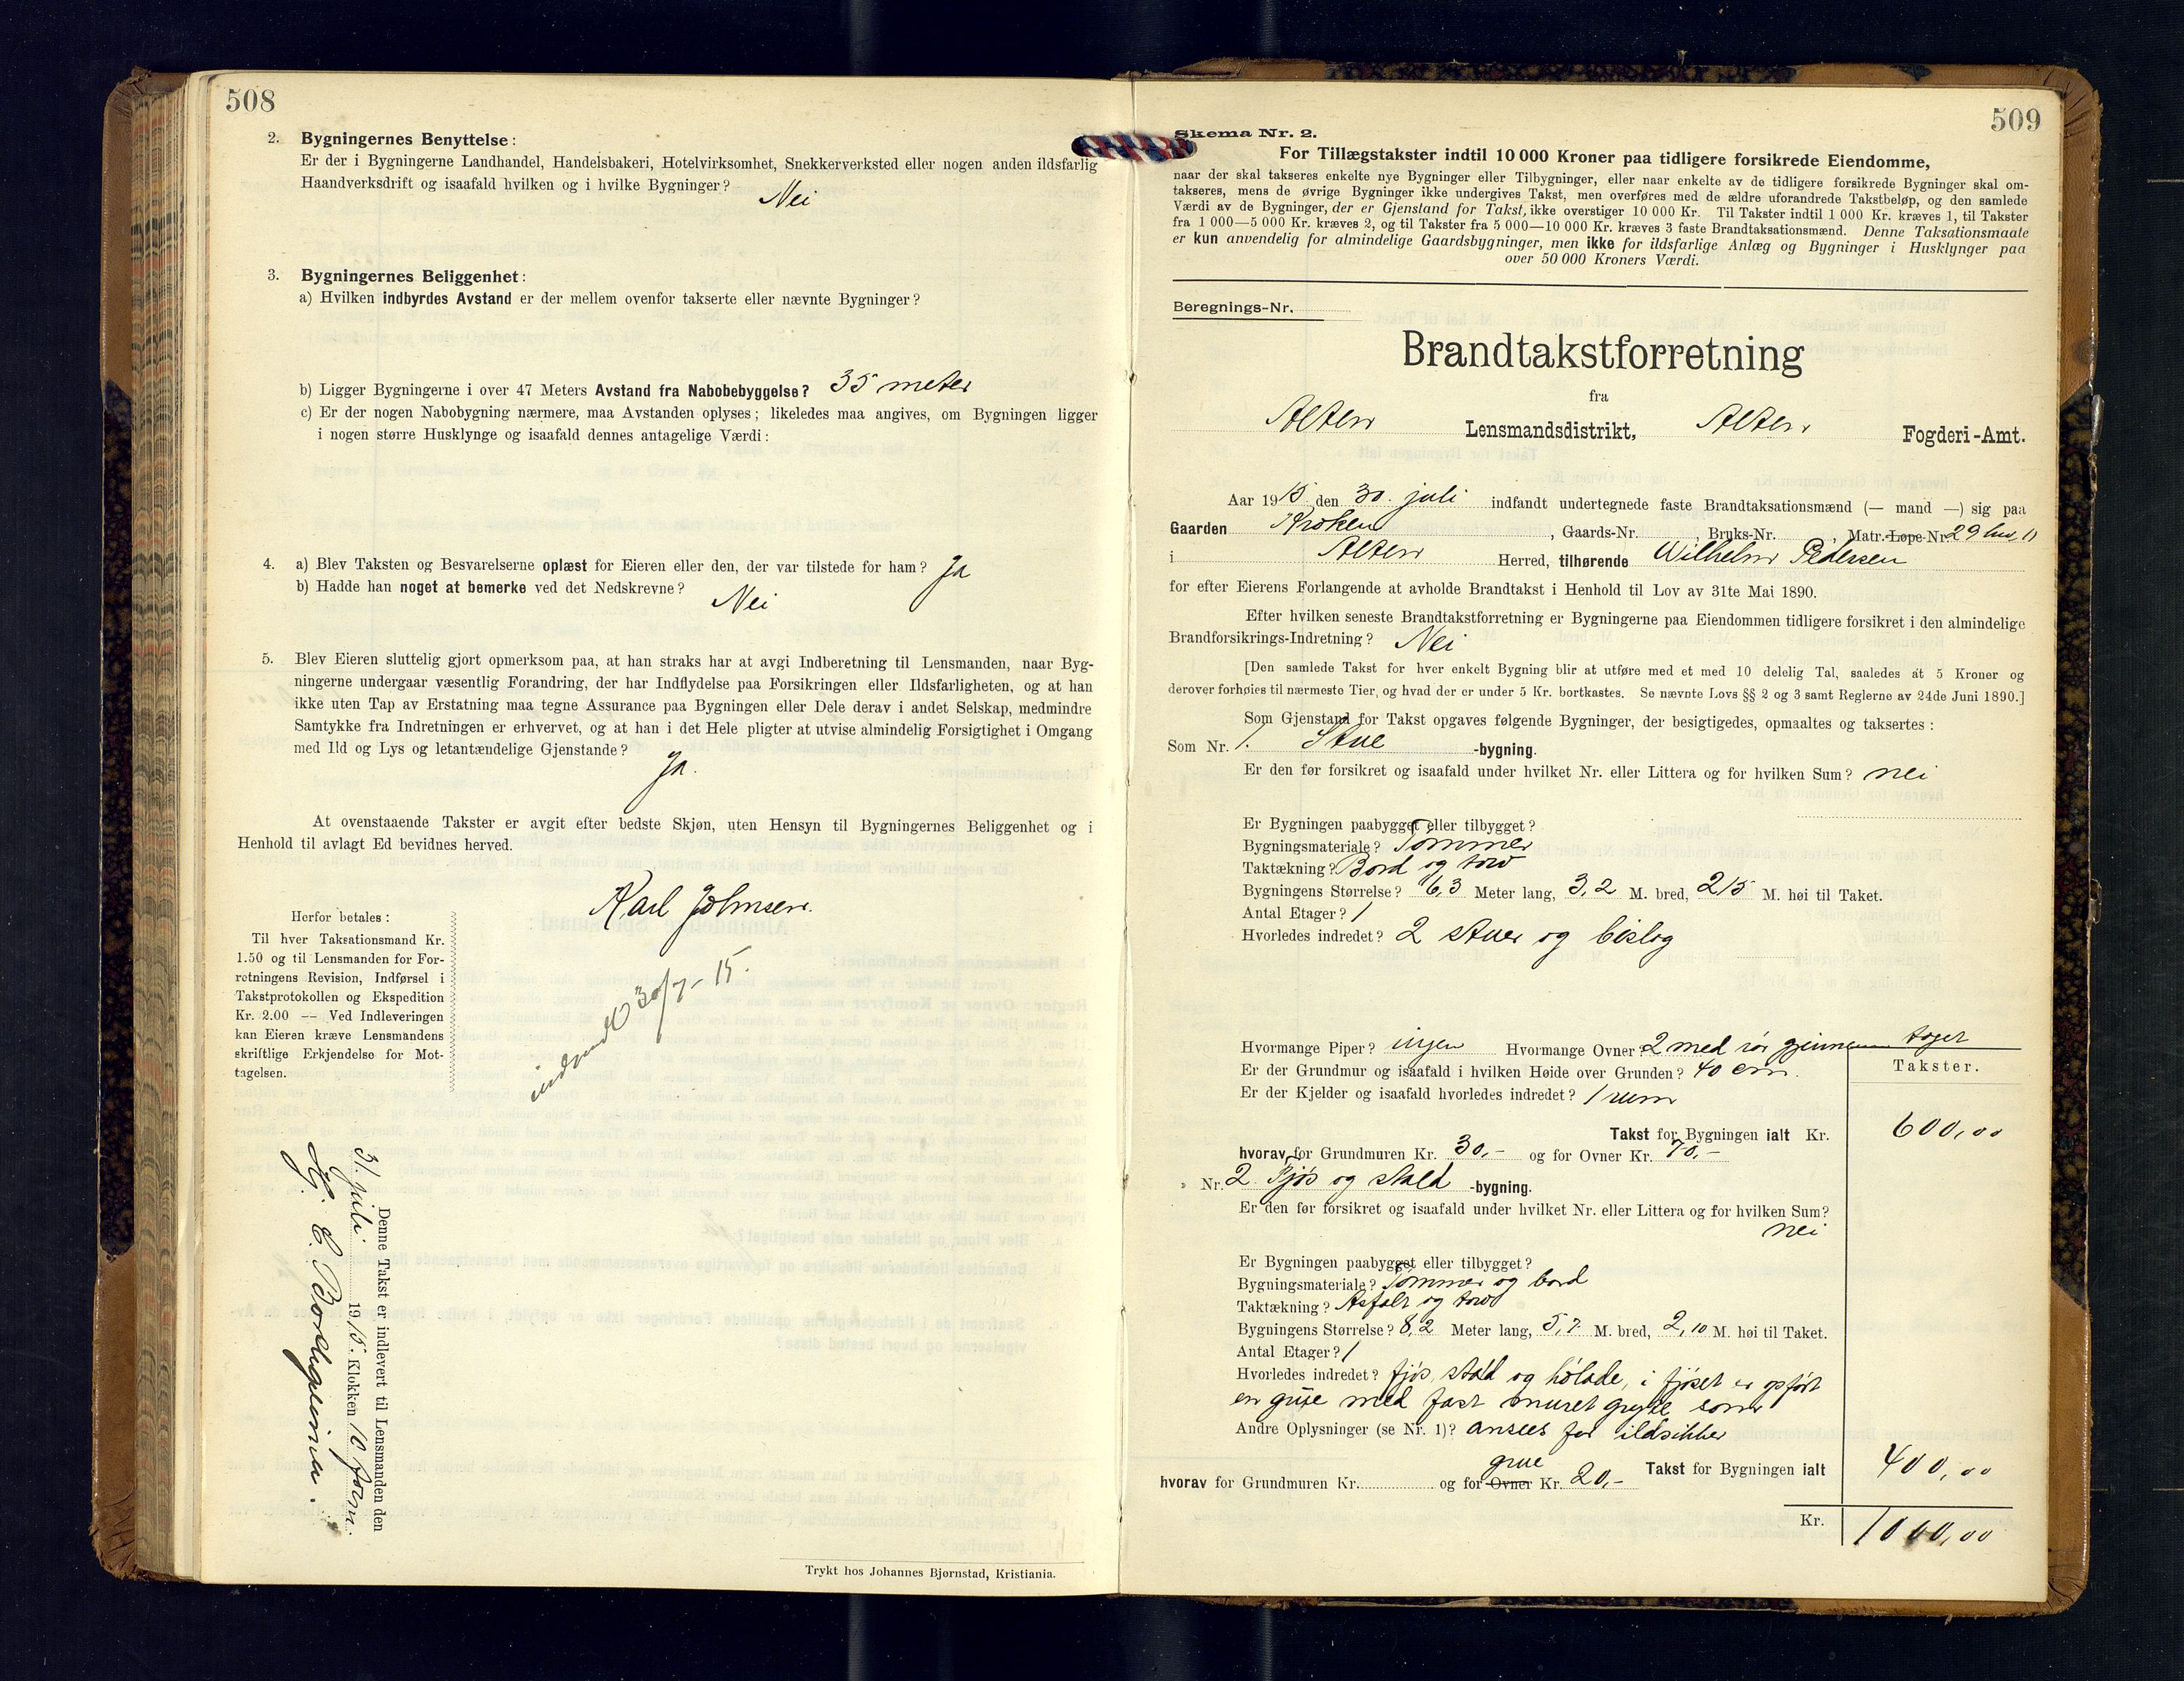 508
2. Bygningernes Benyttelse:
Er der i Bygningerne Landhandel, Handelsbakeri, Hotelvirksomhet, Snekkerverksted eller nogen anden ildsfarlig
Haandverksdrift og isaafald hvilken og i hvilke Bygninger?
Nei
3. Bygningernes Beliggenhet:
a) Hvilken indbyrdes Avstand er der mellem ovenfor takserte eller nævnte Bygninger?
b) Ligger Bygningerne i over 47 Meters Avstand fra Nabobebyggelse? 35 meter
c) Er der nogen Nabobygning nærmere, maa Avstanden oplyses; likeledes maa angives, om Bygningen ligger
i nogen større Husklynge og isaafald dennes antagelige Værdi:
4. a) Blev Taksten og Besvarelserne oplæst for Eieren eller den, der var tilstede for ham? Ja
b) Hadde han noget at bemerke ved det Nedskrevne?
Nei
5. Blev Eieren sluttelig gjort opmerksom paa, at han straks har at avgi Indberetning til Lensmanden, naar Byg-
ningerne undergaar væsentlig Forandring, der har Indflydelse paa Forsikringen eller Ildsfarligheten, og at han
ikke uten Tap av Erstatning maa tegne Assurance paa Bygningen eller Dele derav i andet Selskap, medmindre
Samtykke fra Indretningen er erhvervet, og at han i det Hele pligter at utvise almindelig Forsigtighet i Omgang
med Ild og Lys og letantændelige Gjenstande?
Ja.
At ovenstaaende Takster er avgit efter bedste Skjøn, uten Hensyn til Bygningernes Beliggenhet og i
Henhold til avlagt Ed bevidnes herved.
Karl Johnsen.
Herfor betales:
Til hver Taksationsmand Kr.
1.50 og til Lensmanden for For-
retningens Revision, Indførsel i
Takstprotokollen og Ekspedition
Kr. 2.00 — Ved Indleveringen
kan Eieren kræve Lensmandens
skriftlige Erkjendelse for Mot-
tagelsen.
30/7-15.
Denne Takst er indlevert til Lensmanden den
31. juli 1915. Klokken 10 form.
Trykt hos Johannes Bjørnstad, Kristiania.
509
Skema Nr. 2.
For Tillægstakster indtil 10 000 Kroner paa tidligere forsikrede Eiendomme,
naar der skal takseres enkelte nye Bygninger eller Tilbygninger, eller naar enkelte av de tidligere forsikrede Bygninger skal om-
takseres, mens de øvrige Bygninger ikke undergives Takst, men overføres med de ældre uforandrede Takstbeløp, og den samlede
Værdi av de Bygninger, der er Gjenstand for Takst, ikke overstiger 10 000 Kr. Til Takster indtil 1 000 Kr. kræves 1, til Takster
fra 1 000—5 000 Kr. kræves 2, og til Takster fra 5 000—10 000 Kr. kræves 3 faste Brandtaksationsmænd. Denne Taksationsmaate
er kun anvendelig for almindelige Gaardsbygninger, men ikke for ildsfarlige Anlæg og Bygninger i Husklynger paa
over 50 000 Kroners Værdi.
Beregnings-Nr.
Brandtakstforretning
fra
Alten Lensmandsdistrikt, Alten Fogderi-Amt.
Aar 1915 den 30. juli indfandt undertegnede faste Brandtaksationsmænd (— mand —) sig paa
Gaarden Kroken, Gaards-Nr. , Bruks-Nr. , Matr. Løpe-Nr. 29
i Alten Herred, tilhørende Wilhelm Pedersen
for efter Eierens Forlangende at avholde Brandtakst i Henhold til Lov av 31te Mai 1890.
Efter hvilken seneste Brandtakstforretning er Bygningerne paa Eiendommen tidligere forsikret i den almindelige
Brandforsikrings-Indretning? Nei
[Den samlede Takst for hver enkelt Bygning blir at utføre med et med 10 delelig Tal, saaledes at 5 Kroner og
derover forhøies til nærmeste Tier, og hvad der er under 5 Kr. bortkastes. Se nævnte Lovs §§ 2 og 3 samt Reglerne av 24de Juni 1890.]
Som Gjenstand for Takst opgaves følgende Bygninger, der besigtigedes, opmaaltes og taksertes:
Som Nr. 1. Stue -bygning.
Er den før forsikret og isaafald under hvilket Nr. eller Littera og for hvilken Sum? nei
Er Bygningen paabygget eller tilbygget?
Bygningsmateriale? Tømmer
Taktækning? Bord og torv
Bygningens Størrelse? 6,3 Meter lang, 3,2 M. bred, 2,15 M. høi til Taket.
Antal Etager? 1
Hvorledes indredet? 2 stuer og bislog
Hvormange Piper? ingen Hvormange Ovner? 2 med rør gjennem taget
Er der Grundmur og isaafald i hvilken Høide over Grunden? 40 cm.
Takster.
Er der Kjelder og isaafald hvorledes indredet? 1 rum
Takst for Bygningen ialt Kr. 600,00
hvorav for Grundmuren Kr. 30,- og for Ovner Kr. 70,-
" Nr. 2 Fjøs og stald -bygning.
Er den før forsikret og isaafald under hvilket Nr. eller Littera og for hvilken Sum?
nei
Er Bygningen paabygget eller tilbygget?
Bygningsmateriale? Tømmer og bord
Taktækning? Asfalt og torv
Bygningens Størrelse? 8,2 Meter lang, 5,7 M. bred, 2,10 M. høi til Taket.
Antal Etager? 1
Hvorledes indredet? fjøs, stald og hølade, i fjøset er opført
en grue med fast muret gryte som
Andre Oplysninger (se Nr. 1)? ansees for ildsikker
Takst for Bygningen ialt 400,00
hvorav for Grundmuren Kr. og for Ovner grue Kr. 20,-
Kr. 1000,00